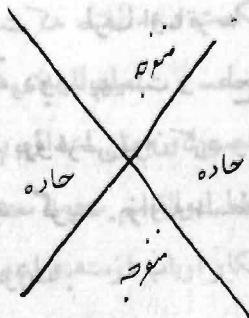 منفرجه
حاده
حاده
منفرجه